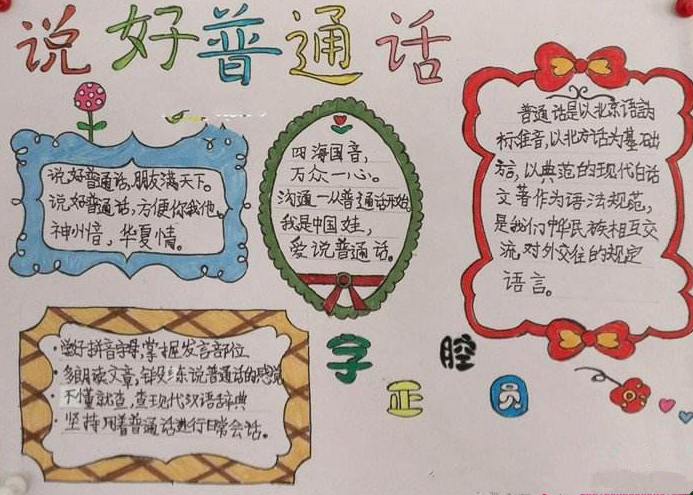 说好普通话
说好普通话,朋友满天下。
说好普通话,方便你我他。
神州音,华夏情。
四海国音,
万众一心。
沟通一从普通话开始
我是中国娃,
爱说普通话。
普通话是以北京语音为
标准音,以北方话为基础
方言,以典范的现代白话
文著作为语法规范,
是我们中华民族相互交
流对外交往的规定
语言。
·学好拼音字母,掌握发言部位
·多朗读文章,锻炼说普通话的感觉
·不懂就查,查现代汉语辞典
·坚持用着普通话进行日常会话。
字正腔员